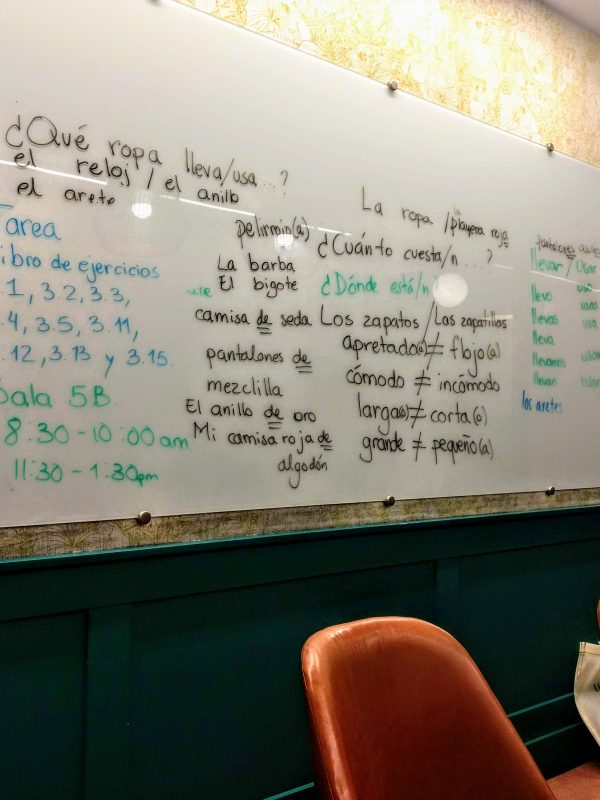 ¿Qué ropa lleva/usa...?
el reloj / el anillo
el arete
Tarea
libro de ejercicios
.1, 3.2, 3.3,
.4, 3.5, 3.11,
.12, 3.13 y 3.15.
Sala 5B
8:30-10:00am
11:30-1:30pm
pelirrojo(a)
La barba
El bigote
use
camisa de seda
pantalones de
mezclilla
El anillo de oro
Mi camisa roja de
algodón
La ropa / la playera roja
¿Cuánto cuesta/n...?
¿Dónde está/n
Los zapatos / Las zapatillas
apretado(a) ≠ flojo(a)
cómodo ≠ incómodo
larga(o) ≠ corta(o)
grande ≠ pequeño(a)
pantalones azules
llevar / usar
llevo uso
llevas usas
lleva usa
llevamos usam
llevan usan
los aretes